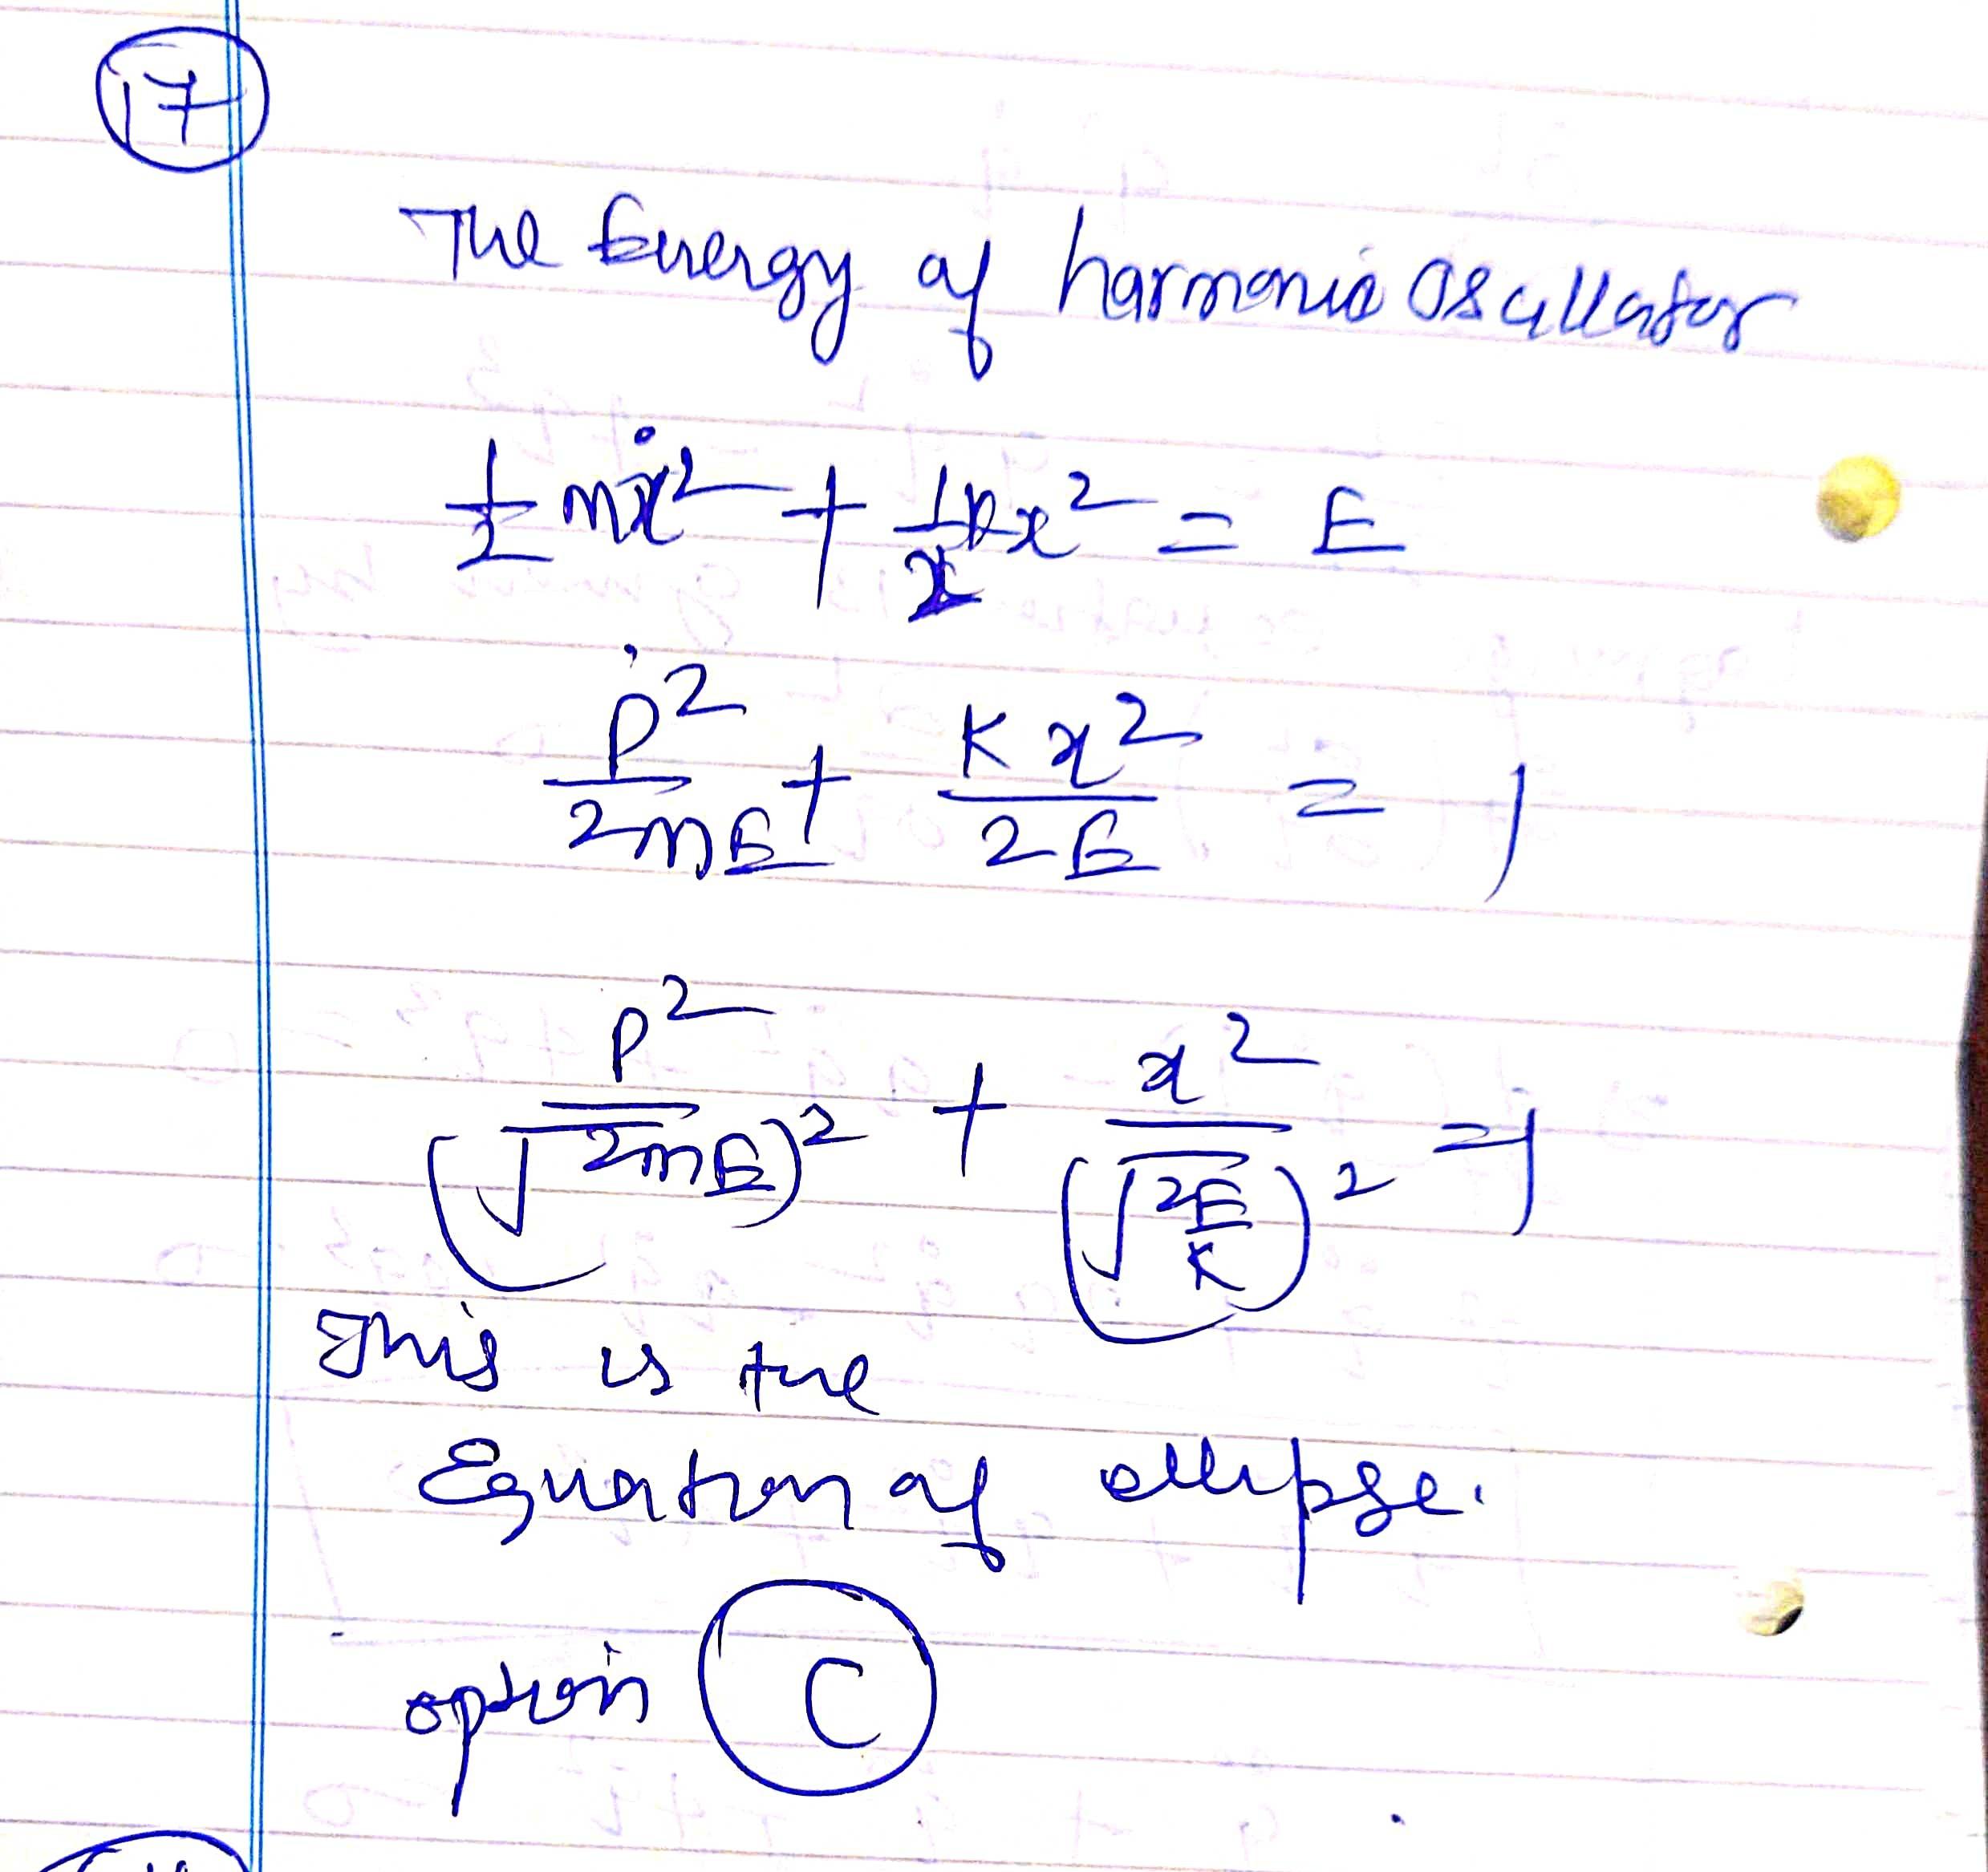 17
The Energy of harmonic Oscillator
1/2 mẋ² + 1/2 kx² = E
P²/2mE + Kx²/2E = 1
P²/(√2mE)² + x²/(√2E/K)² = 1
This is the
Equation of ellipse.
option C